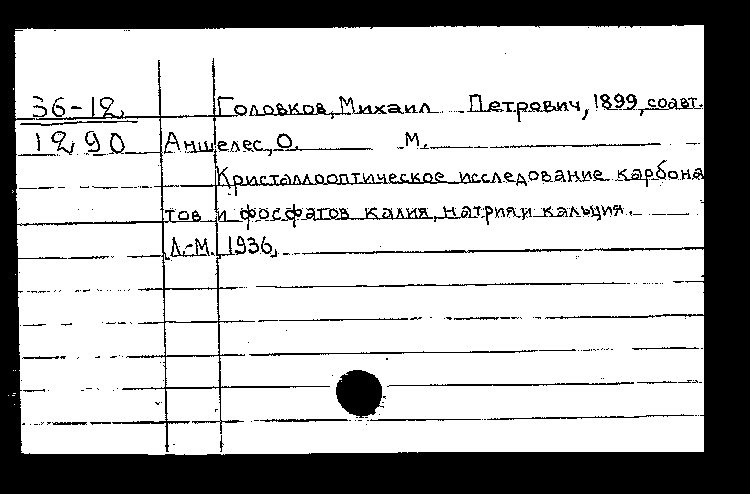 36-12 Головков, Михаил Петрович, 1899, соавт.
1290 Аншелес, О. М.
Кристаллооптическое исследование карбона
тов и фосфатов калия, натрия и кальция.
Л.-М. 1936,